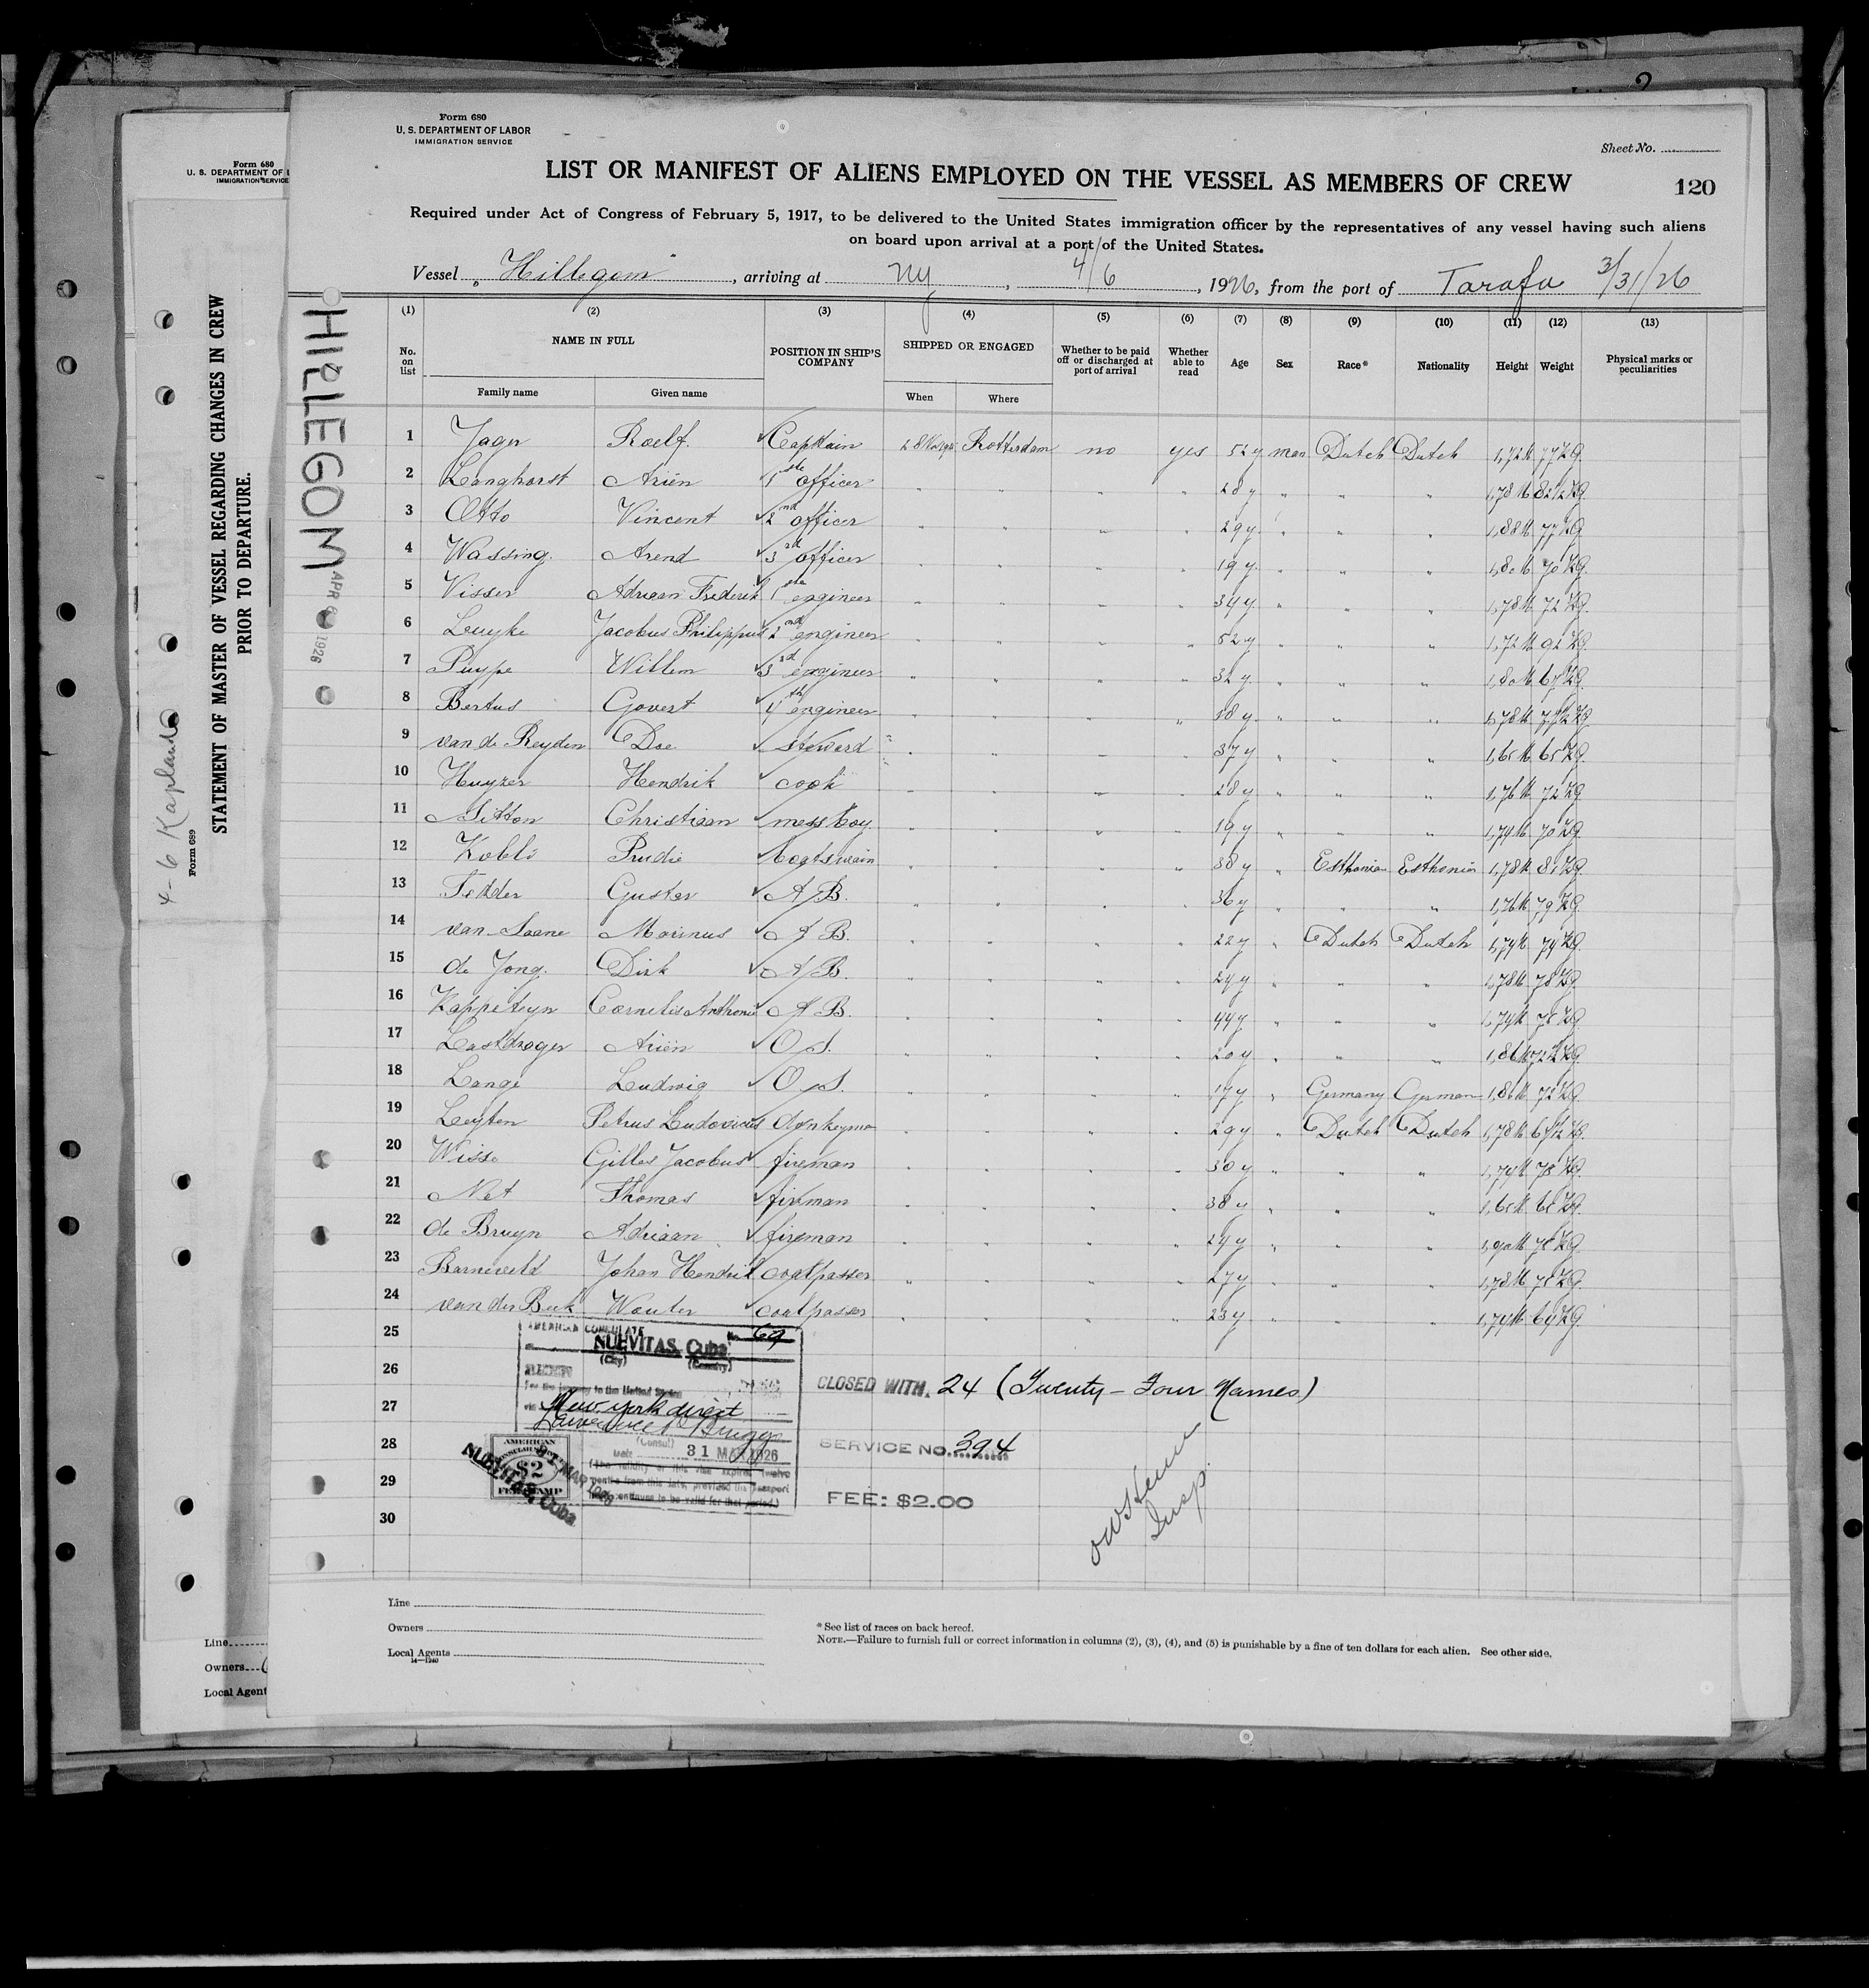 Form 680
U. S. DEPARTMENT OF LABOR
IMMIGRATION SERVICE
Sheet No.
LIST OR MANIFEST OF ALIENS EMPLOYED ON THE VESSEL AS MEMBERS OF CREW
120
Required under Act of Congress of February 5, 1917, to be delivered to the United States immigration officer by the representatives of any vessel having such aliens
on board upon arrival at a port of the United States.
Vessel "Hillegom", arriving at NY, 4/6, 1926, from the port of Tarafa 3/31/26
(1) (2) (3) (4) (5) (6) (7) (8) (9) (10) (11) (12) (13)
No. on list NAME IN FULL POSITION IN SHIP'S COMPANY SHIPPED OR ENGAGED Whether to be paid off or discharged at port of arrival Whether able to read Age Sex Race* Nationality Height Weight Physical marks or peculiarities
Family name Given name When Where
1 Jager Roelf. Captain Rotterdam no yes 52 y man Dutch Dutch 1,72 M 77 KG
2 Langhorst Ariën 1ste officer " " " " 28 y " " " 1,78 M 82½ KG
3 Otto Vincent 2nd officer " " " " 29 y " " " 1,88 M 77 KG
4 Wassing Arend 3rd officer " " " " 19 y " " " 1,80 M 70 KG
5 Visser Adriaan Frederik 1ste engineer " " " " 34 y " " " 1,78 M 72 KG
6 Leuyke Jacobus Philippus 2nd engineer " " " " 52 y " " " 1,72 M 92 KG
7 Puype Willem 3rd engineer " " " " 32 y " " " 1,80 M KG
8 Bertus Govert 4th engineer " " " " 18 y " " " 1,78 M KG
9 van de Reyden Doe steward " " " " 37 y " " " 1,65 M 65 KG
10 Huyzer Hendrik cook " " " " 28 y " " " 1,76 M 72 KG
11 Sitton Christiaan messboy " " " " 19 y " " " 1,74 M 70 KG
12 Kobli Prudie boatswain " " " " 38 y " Esthonian Esthonia 1,78 M 81 KG
13 Tedder Gustav A/B. " " " " 36 y " " " 1,76 M 79 KG
14 van Loane Marinus A/B. " " " " 22 y " Dutch Dutch 1,74 M 74 KG
15 de Jong. Dirk A/B. " " " " 24 y " " " 1,78 M 78 KG
16 Kappiteyn Cornelis Anthonie A/B. " " " " 44 y " " " 1,74 M 75 KG
17 Lastdrager Ariën O/S. " " " " 20 y " " " 1,86 M 72½ KG
18 Lange Ludwig O/S. " " " " 17 y " Germany German 1,86 M 72 KG
19 Leyten Petrus Ludovicus donkeyman " " " " 29 y " Dutch Dutch 1,78 M KG
20 Wisse Gilles Jacobus fireman " " " " 30 y " " " 1,74 M 78 KG
21 Net Thomas fireman " " " " 38 y " " " 1,65 M 65 KG
22 de Bruyn Adriaan fireman " " " " 24 y " " " 1,90 M 78 KG
23 Barneveld Johan Hendrik coalpasser " " " " 27 y " " " 1,78 M 75 KG
24 van der Beek Wouter coalpasser " " " " 23 y " " " 1,74 M 64 KG
25
26
27
28
29
30
AMERICAN CONSULATE
No. 69
NUEVITAS, Cuba
(City) (Country)
For the journey to the United States
via New York direct
Lawrence P Briggs
(Consul)
Date 31 MAR 1926
(The validity of this visa expires twelve
months from this date, provided the passport
continues to be valid for that period.)
AMERICAN
CONSULAR
$2
FEE STAMP
NUEVITAS, Cuba
31 MAR 1926
CLOSED WITH. 24 (Twenty-Four Names)
SERVICE NO. 394
FEE: $2.00
Insp.
Line
Owners
Local Agents
14—1240
* See list of races on back hereof.
NOTE.—Failure to furnish full or correct information in columns (2), (3), (4), and (5) is punishable by a fine of ten dollars for each alien. See other side.
HILLEGOM
APR 6 1926
Form 680
U. S. DEPARTMENT OF L
IMMIGRATION SERVICE
STATEMENT OF MASTER OF VESSEL REGARDING CHANGES IN CREW
PRIOR TO DEPARTURE.
Form 689
4-6 Kaplan
Line
Owners
Local Agent